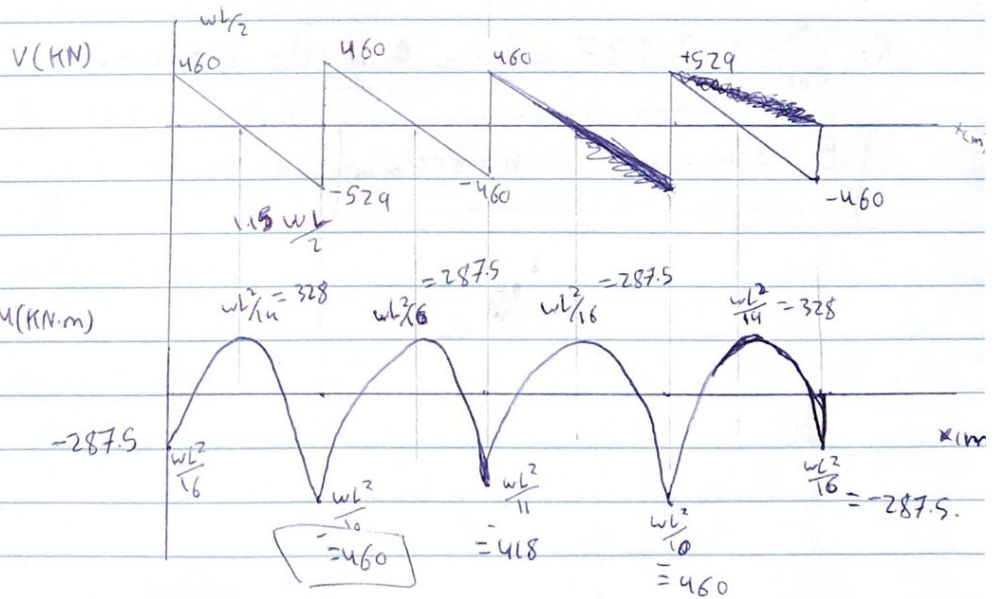 wL/2
V(KN)
460
460
460
+529
x(m)
-529
-460
-460
1.15 wL/2
M(KN.m)
wL²/14 = 328
wL²/16 = 287.5
wL²/16 = 287.5
wL²/14 = 328
-287.5
x(m
wL²/16
wL²/10 = 460
wL²/11 = 418
wL²/10 = 460
wL²/16 = -287.5.